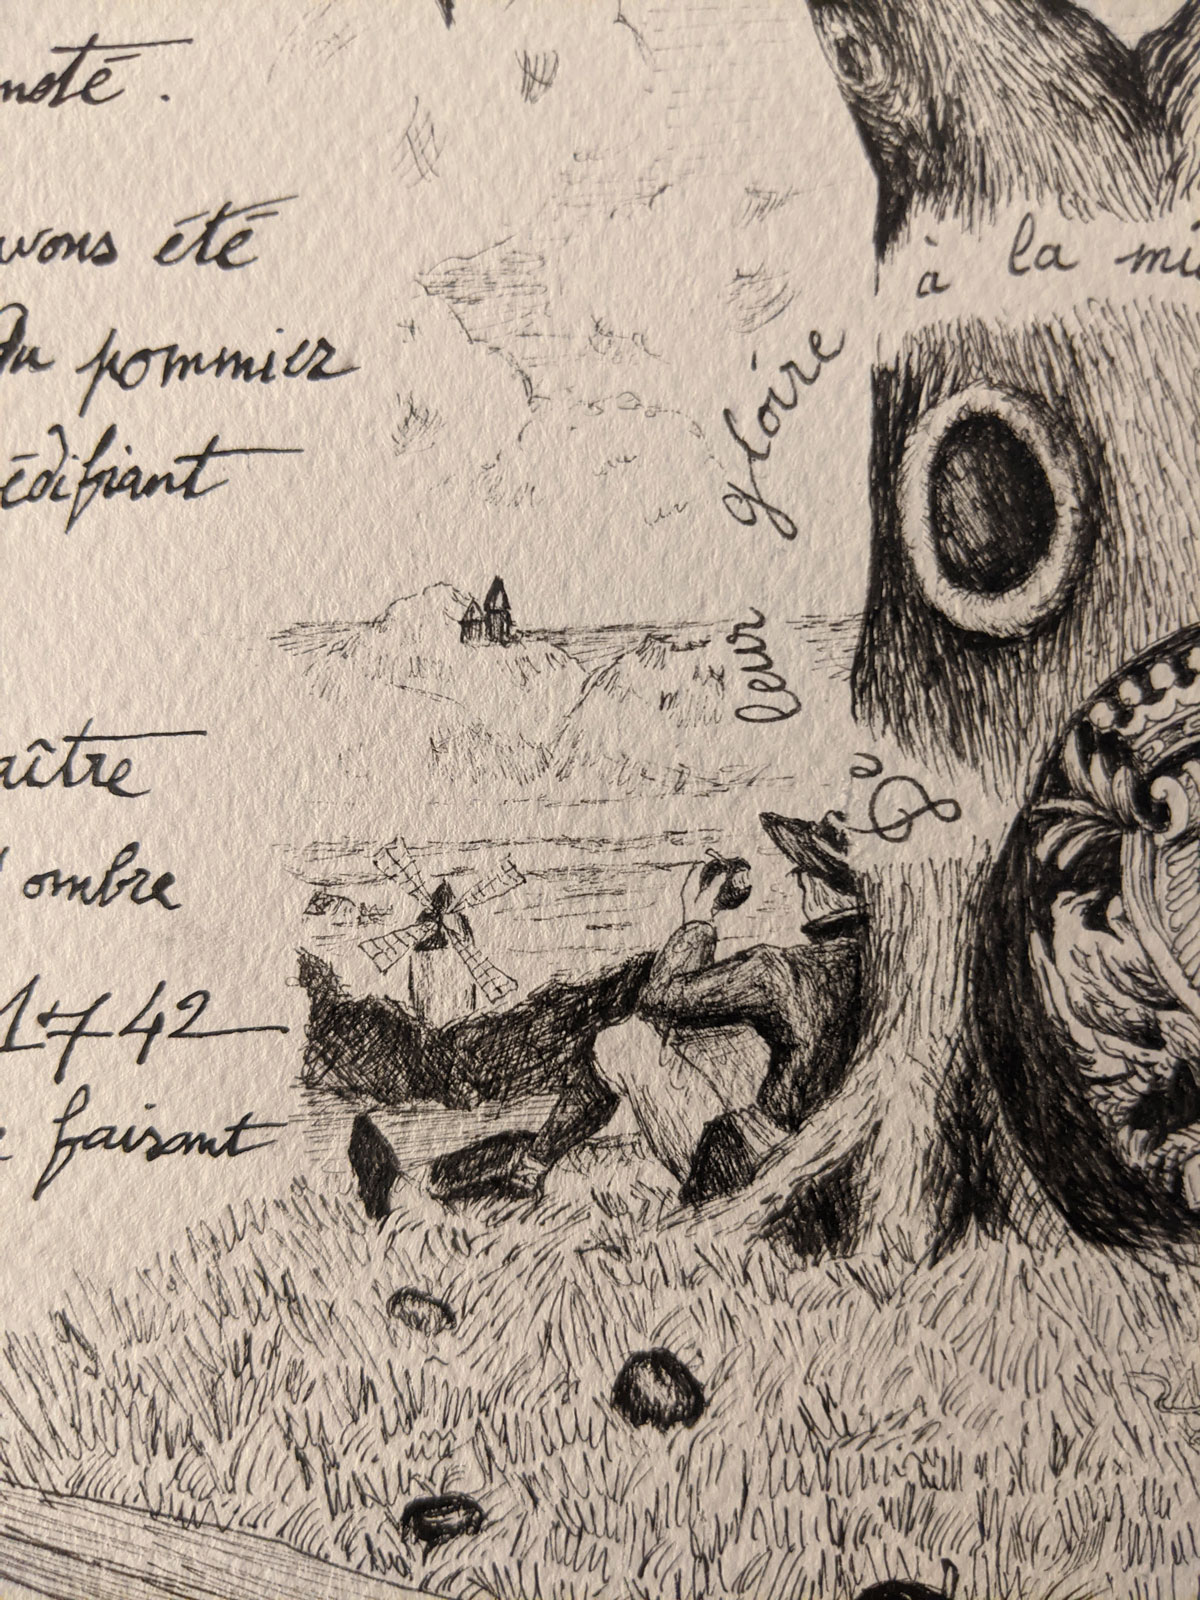 noté.
avons été
du pommier
édifiant
aître
ombre
1742
faisant
à la mi
leur gloire
&